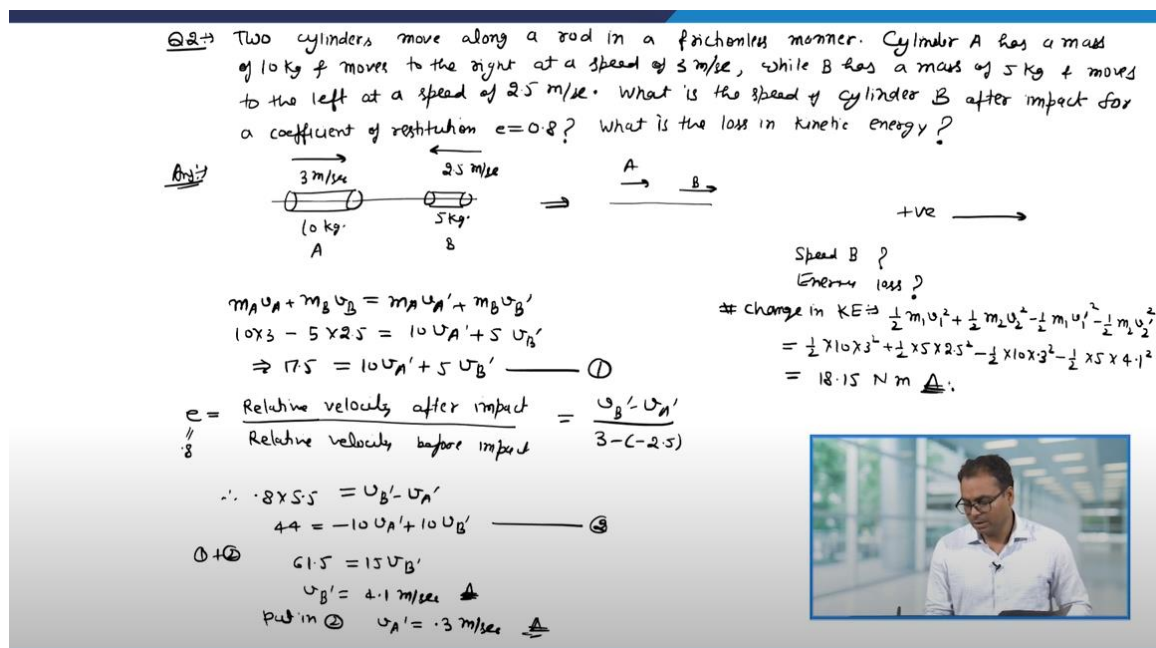 Q2→ Two cylinders move along a rod in a frichonless manner. Cylinder A has a mass
of 10 kg & moves to the right at a speed of 3 m/se, while B has a mass of 5 kg & moves
to the left at a speed of 2.5 m/se. What is the speed of cylinder B after impact for
a coefficient of reshtuhon e=0.8? What is the loss in kinetic energy?
Ans:→
3 m/sec
2.5 m/se
10 kg.
A
5 kg.
B
⇒
A
B
+ve
Speed B ?
Energy loss ?
mAυA + mBυB = mAυA' + mBυB'
10×3 - 5×2.5 = 10υA' + 5υB'
⇒ 17.5 = 10υA' + 5υB' ——— ①
e = Relative velocity after impact / Relative velocity before impact = υB' - υA' / 3-(-2.5)
.8
∴ .8×5.5 = υB' - υA'
44 = -10υA' + 10υB' ——— ②
①+② 61.5 = 15υB'
υB' = 4.1 m/sec A
Put in ② υA' = .3 m/sec A
# Change in KE ⇒ 1/2 m1υ1² + 1/2 m2υ2² - 1/2 m1υ1'² - 1/2 m2υ2'²
= 1/2 ×10×3² + 1/2 ×5×2.5² - 1/2 ×10×.3² - 1/2 ×5×4.1²
= 18.15 N m A.